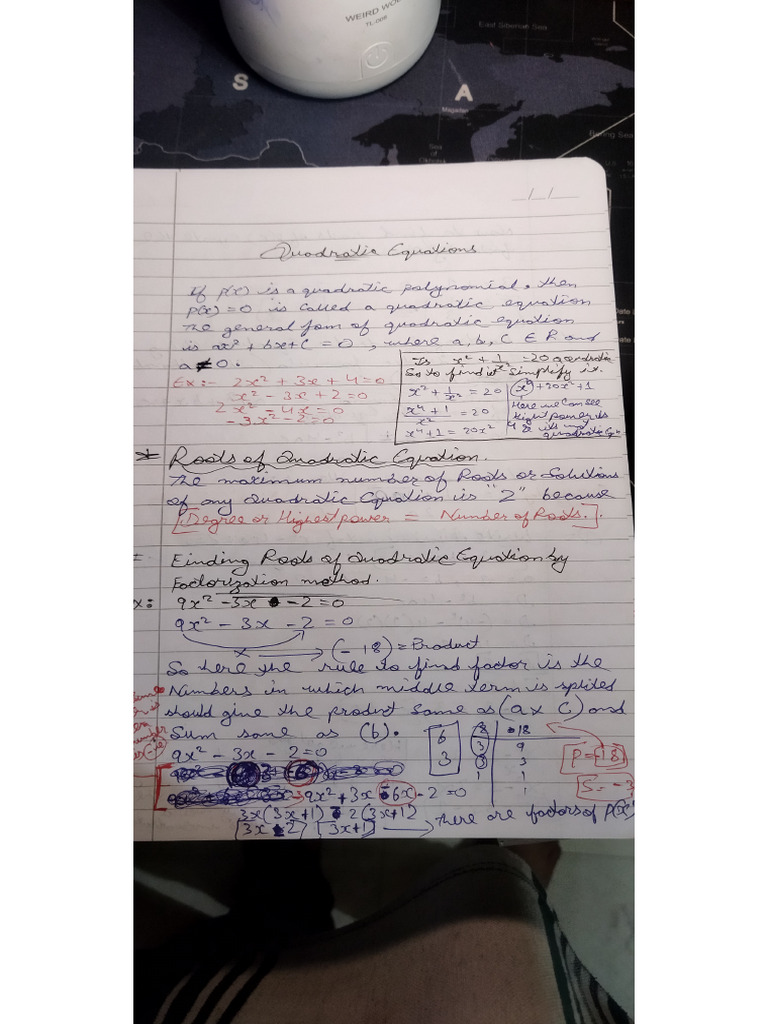 WEIRD WO
TL-008
East Siberian Sea
S
A
Magadan
Bering Sea
Sea
of
_/_/_
Quadratic Equations
If P(x) is a quadratic polynomial, then
P(x) = 0 is called a quadratic equation
The general fom of quadratic equation
is ax² + bx + c = 0, where a, b, c ∈ R and
a ≠ 0.
Is x² + 1/x² = 20 a quadratic
So to find it simplify it.
x² + 1/x² = 20
x⁴+1/x² = 20
x⁴+1 = 20x²
+20x²+1
Here we can see
Hight power is
4 & its not
quadratic Eq=
Ex:- 2x² + 3x + 4 = 0
x² - 3x + 2 = 0
2x² - 4x = 0
-3x² - 2 = 0
* Roots of Quadratic Equation.
The maximum number of Roots or Solutions
of any Quadratic Equation is "2" because
[Degree or Highest power = Number of Roots.].
Finding Roots of Quadratic Equation by
Factorization method.
x: 9x² - 3x - 2 = 0
9x² - 3x - 2 = 0
x → (-18) = Product
So here the rule to find factor is the
Numbers in which middle term is splited
should give the product same as (a x c) and
Sum same as (b).
6
3
18
9
3
1
P = -18
S = -3
9x² - 3x - 2 = 0
9x² + 3x - 6x - 2 = 0
3x(3x+1) - 2(3x+1)
3x - 2 3x+1 → there are factors of P(x)